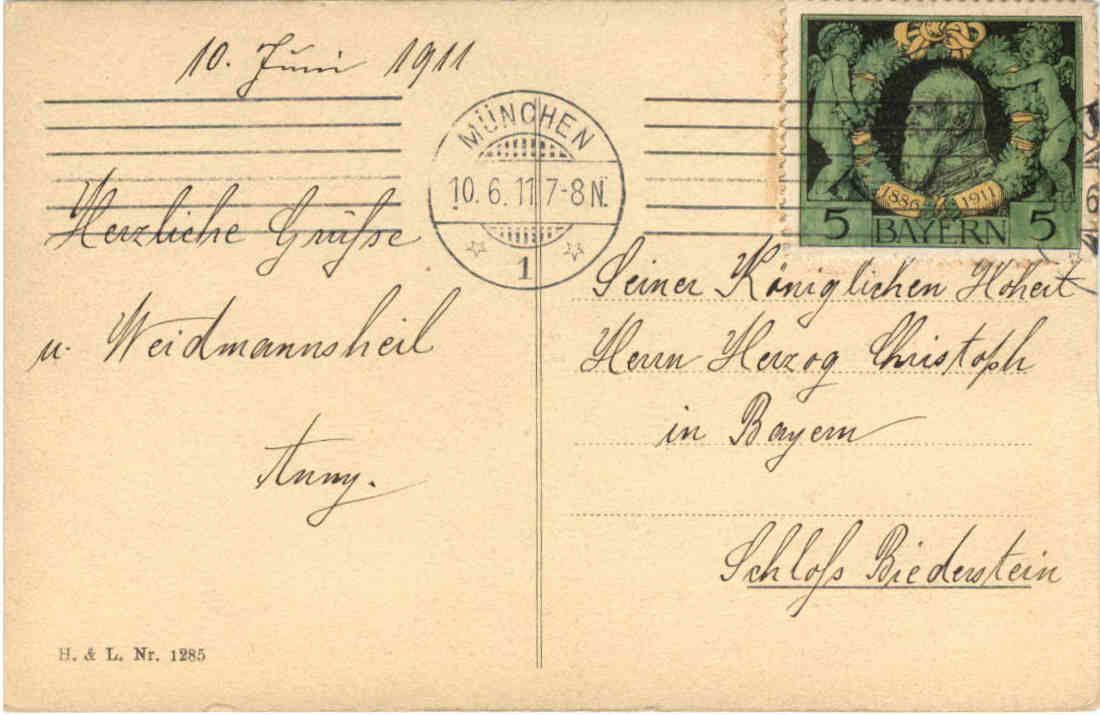 10. Juni 1911
Herzliche Grüße
u. Weidmannsheil
Anny.
H. & L. Nr. 1285
MÜNCHEN
10.6.11 7-8 N.
1
1886 1911
5 BAYERN 5
Seiner Königlichen Hoheit
Herrn Herzog Christoph
in Bayern
Schloß Biederstein